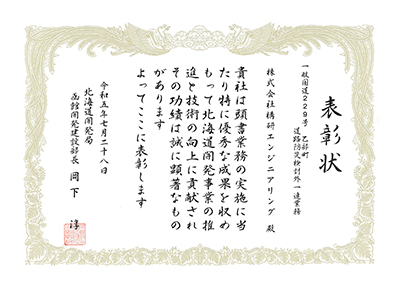 表彰状
一般国道229号 乙部町
道路防災検討外一連業務
株式会社構研エンジニアリング 殿
貴社は頭書業務の実施に当
たり特に優秀な成果を収め
もって北海道開発事業の推
進と技術の向上に貢献され
その功績は誠に顕著なもの
があります
よってここに表彰します
令和五年七月二十八日
北海道開発局
函館開発建設部長 岡下 淳